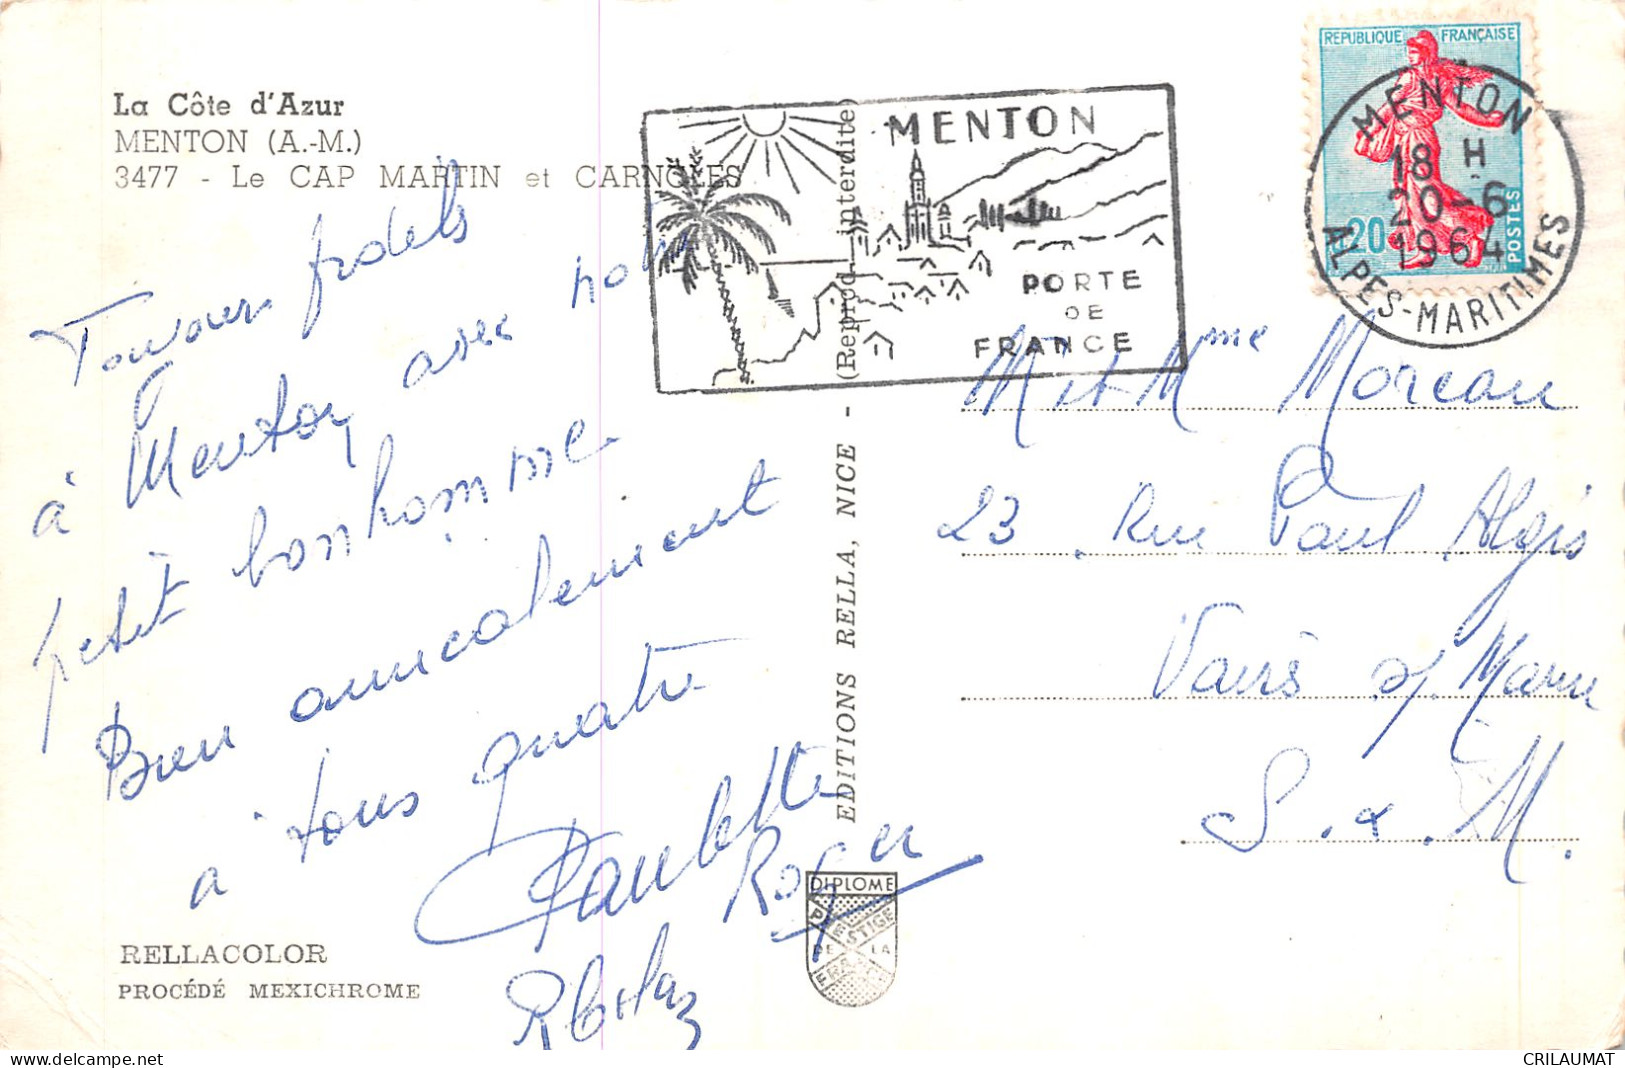 La Côte d'Azur
MENTON (A.-M.)
3477 - Le CAP MARTIN et CARNOLES
Toujours fidels
à Menton avec notre
petit bonhomme
Bien amicalement
a tous quatre
Paulette
Roger
RELLACOLOR
PROCÉDÉ MEXICHROME
EDITIONS RELLA, NICE - (Reprod. interdite)
DIPLOME
PRESTIGE
DE LA
FRANCE
MENTON
PORTE
DE
FRANCE
REPUBLIQUE FRANÇAISE
0,20
POSTES
MENTON
18 H
20-6
1964
ALPES-MARITIMES
M et Mme Moreau
23 Rue Paul Algis
Vaires s/ Marne
S. & M.
CRILAUMAT